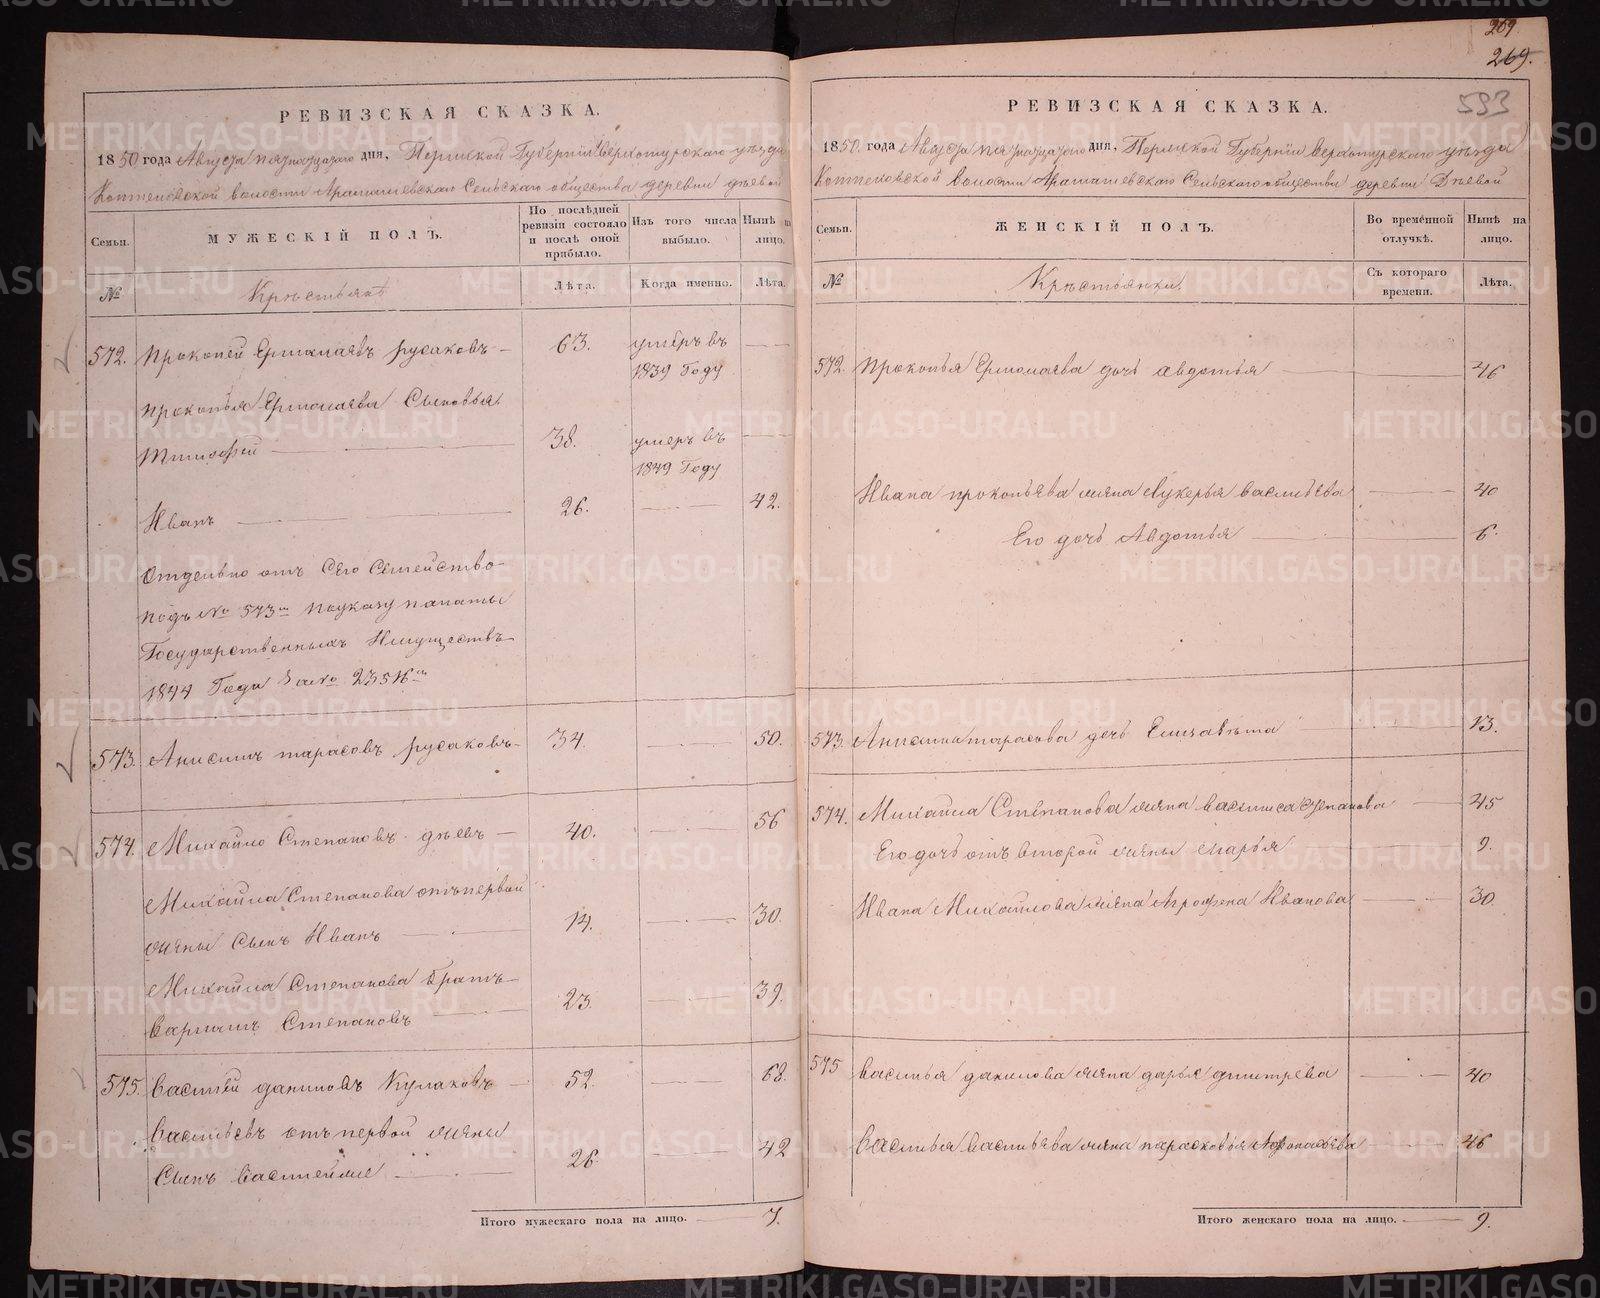 РЕВИЗСКАЯ СКАЗКА.
1850 года Августа пятнадцатого дня, Пермской Губернии Верхотурского уѣзда
Коптеловской волости Арамашевскаго Сельскаго общества деревни Дѣевой
Семьи.
МУЖЕСКІЙ ПОЛЪ.
По послѣдней ревизіи состояло и послѣ оной прибыло.
Изъ того числа выбыло.
Нынѣ на лицо.
№
Крѣстьянѣ
Лѣта.
Когда именно.
Лѣта.
572. Прокопей Ермолаевъ русаковъ 63. умеръ въ
1839 Году
Прокопья Ермолаева Сыновья
Тимофей 38. умеръ въ
1849 Году
Иванъ 26. 42.
Отдельно отъ Сего Семейство
подъ № 573м поуказу палаты
Государственныхъ Имуществъ
1844 Года За №
573. Анисимъ тарасовъ русаковъ 34. 50.
574. Михайло Степановъ дѣевъ 40. 56
Михайла Степанова отъ первой
жены Сынъ Иванъ 14. 30.
Михайла Степанова братъ
Степановъ 23. 39.
575. Василей даниловъ Кулаковъ 52. 68.
Васильевъ отъ первой жены
Сынъ Василей 26. 42
Итого мужескаго пола на лицо. 7.
269.
269.
593
РЕВИЗСКАЯ СКАЗКА.
1850. года Августа пятнадцатого дня, Пермской Губерніи Верхотурского уѣзда
Коптеловской волости Арамашевскаго Сельскаго общества деревни Дѣевой
Семьи.
ЖЕНСКІЙ ПОЛЪ.
Во временной отлучкѣ.
Нынѣ на лицо.
№
Крѣстьянки
Съ котораго времени.
Лѣта.
572. Прокопья Ермолаева дочь авдотья 46
Ивана прокопьева жена Лукерья васильева 40
Его дочь Авдотья 6.
573. Анисима тарасова дочь Елизавѣта 13.
574. Михайла Степанова жена василиса Степанова 45
Его дочь отъ второй жены Марья 9.
Ивана Михайлова жена Агрофена Иванова 30.
575 Василья данилова жена дарья дмитрева 40
Василья васильева жена парасковья Афонасьева 46
Итого женскаго пола на лицо. 9.
METRIKI.GASO-URAL.RU